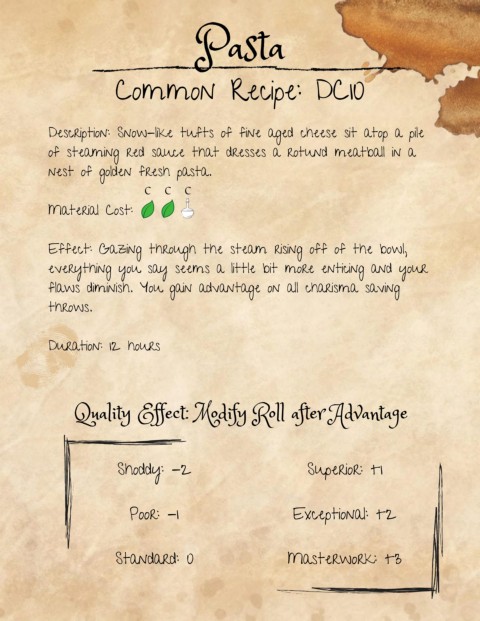 Pasta
Common Recipe: DC10
Description: Snow-like tufts of fine aged cheese sit atop a pile
of steaming red sauce that dresses a rotund meatball in a
nest of golden fresh pasta.
C C C
Material Cost:
Effect: Gazing through the steam rising off of the bowl,
everything you say seems a little bit more enticing and your
flaws diminish. You gain advantage on all charisma saving
throws.
Duration: 12 hours
Quality Effect: Modify Roll after Advantage
Shoddy: -2
Superior: +1
Poor: -1
Exceptional: +2
Standard: 0
Masterwork: +3